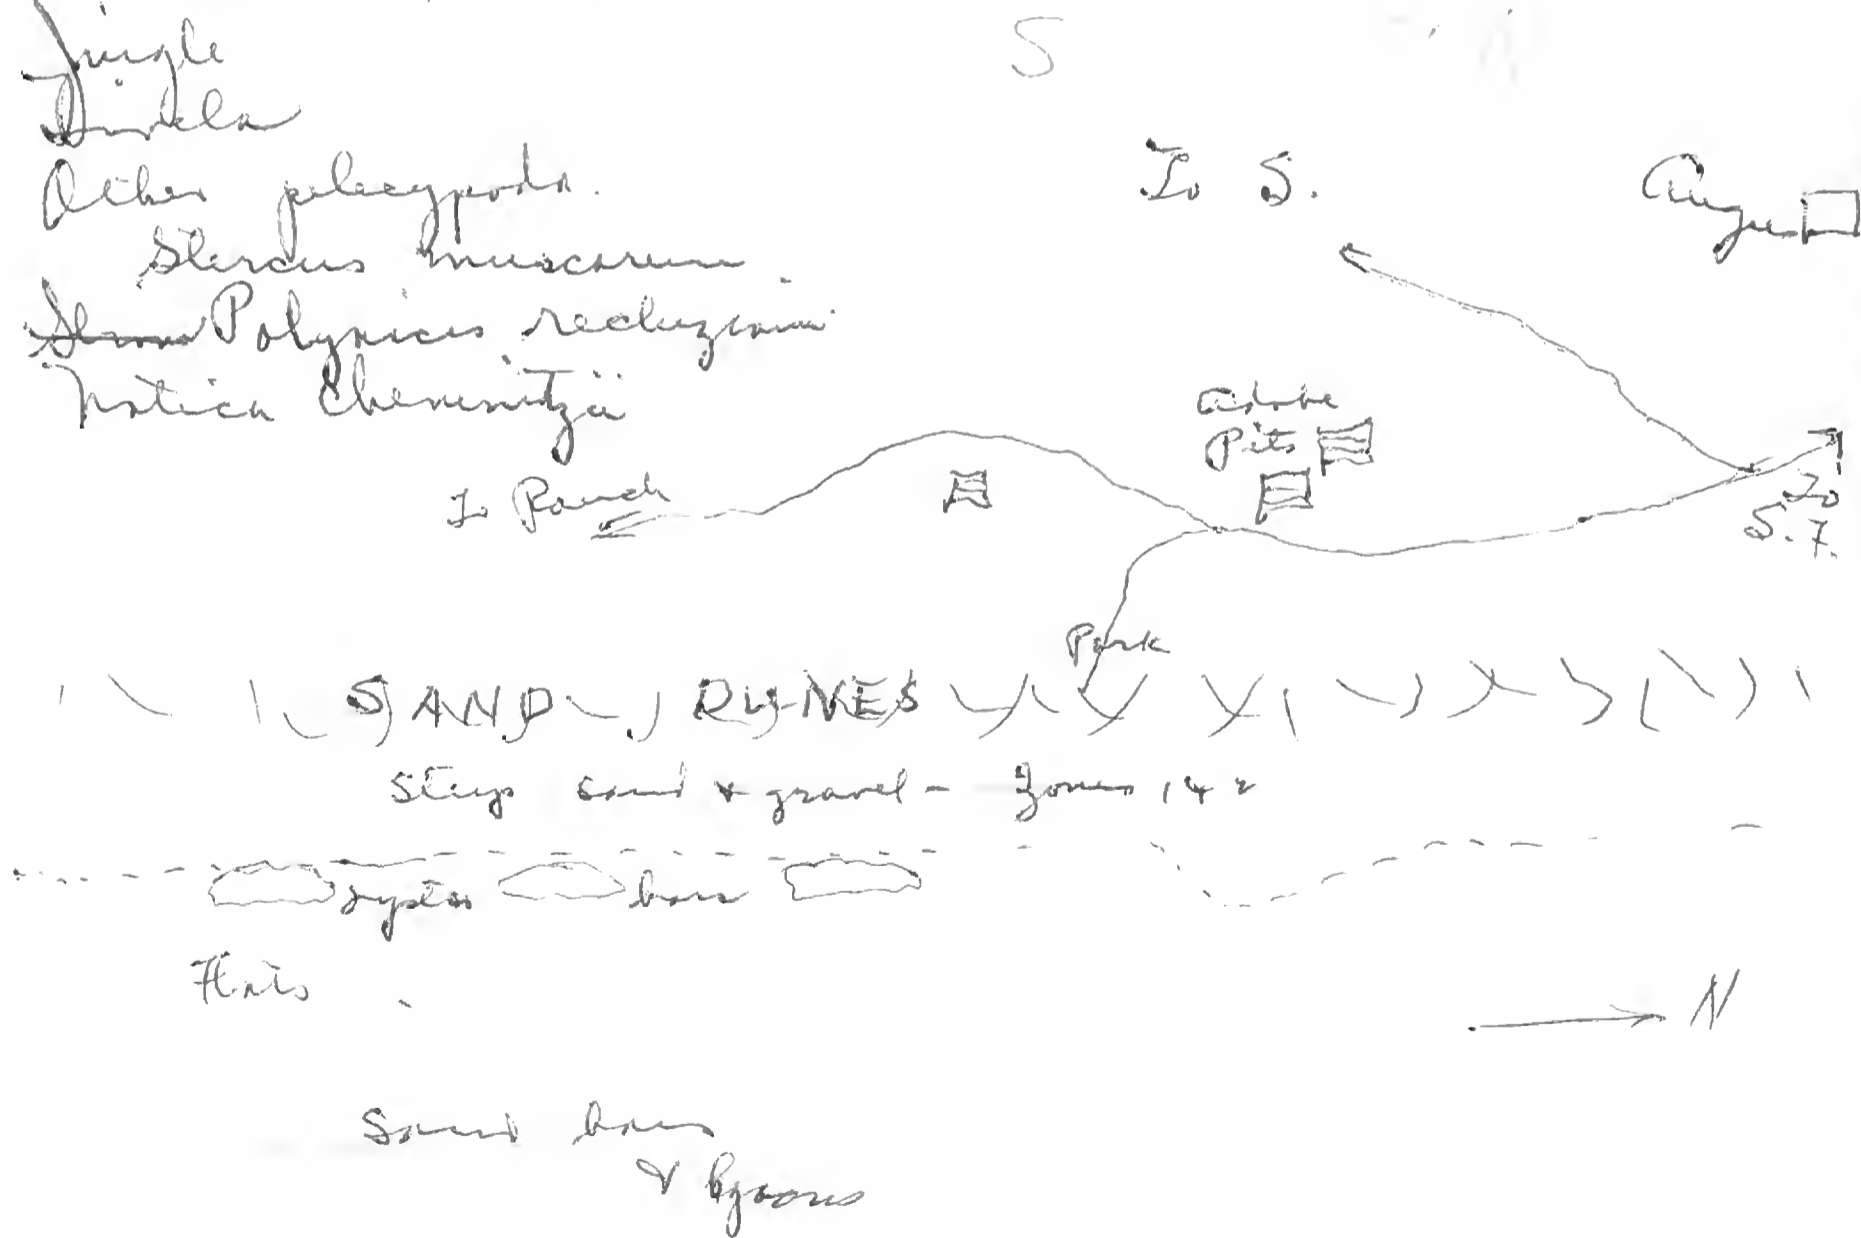 Jingle
Other pelecypods.
Stercus muscarum
Polynices recluzianus
Natica Chemnitzii
S
To S.
To Ranch
Adobe
Pits
To
S. F.
Park
SAND DUNES
Steep sand & gravel - Zones 1 & 2
oyster bars
Flats
N
Sand bars
& lagoons